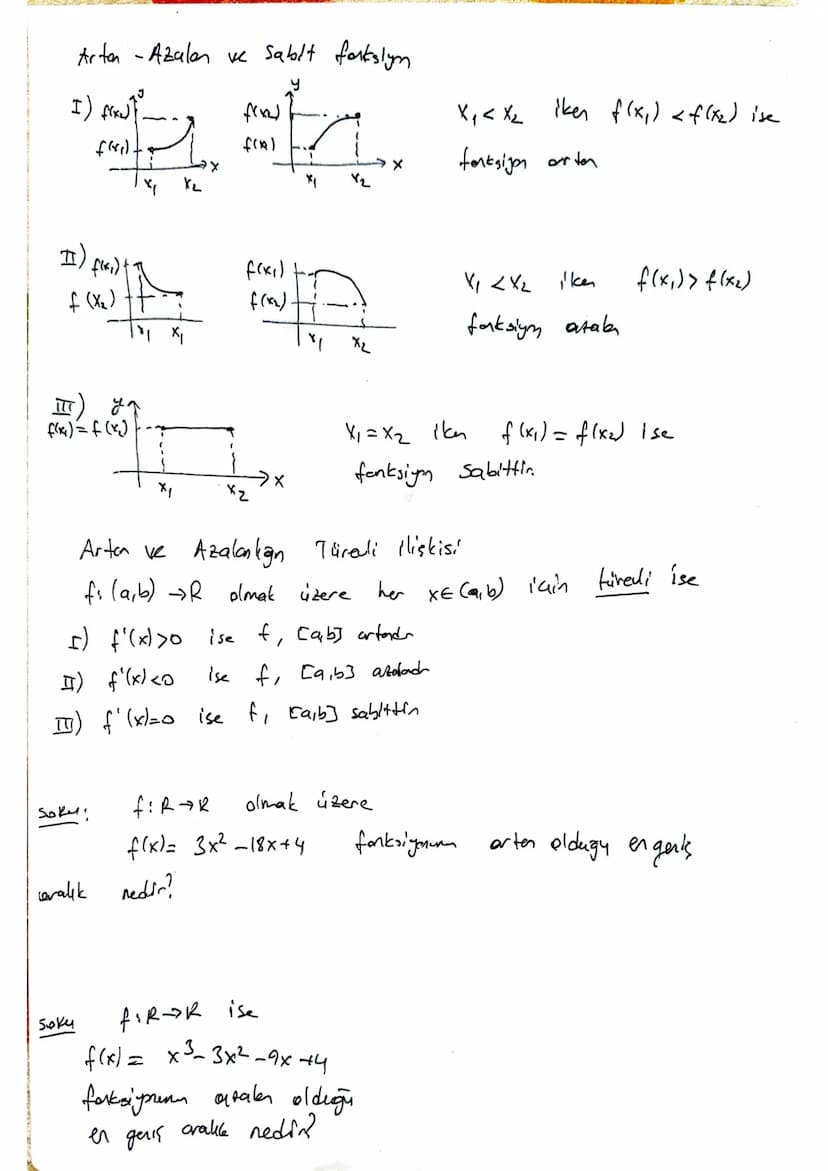 Artan - Azalan ve Sabit fonksiyon
I) f(x₂) y f(x₂) y x₁ < x₂ iken f(x₁) < f(x₂) ise
f(x₁) x f(x) x fonksiyon artan
x₁ x₂ x₁ x₂
II) f(x₁) f(x₁) x₁ < x₂ iken f(x₁) > f(x₂)
f(x₂) f(x₂) fonksiyon azalan
x₁ x₁ x₁ x₂
III) y
f(x₁) = f(x₂) x₁ = x₂ iken f(x₁) = f(x₂) ise
x fonksiyon sabittir.
x₁ x₂
Artan ve Azalanlığın Türevli ilişkisi
f: (a,b) → R olmak üzere her x ∈ (a,b) için türevli ise
I) f'(x) > 0 ise f, [a,b] artandır
II) f'(x) < 0 ise f, [a,b] azalandır
III) f'(x) = 0 ise f, [a,b] sabittir
Soru: f: R → R olmak üzere
f(x) = 3x² - 18x + 4 fonksiyonunun artan olduğu en geniş
aralık nedir?
Soru f: R → R ise
f(x) = x³ - 3x² - 9x + 4
fonksiyonunun azalan olduğu
en geniş aralık nedir?